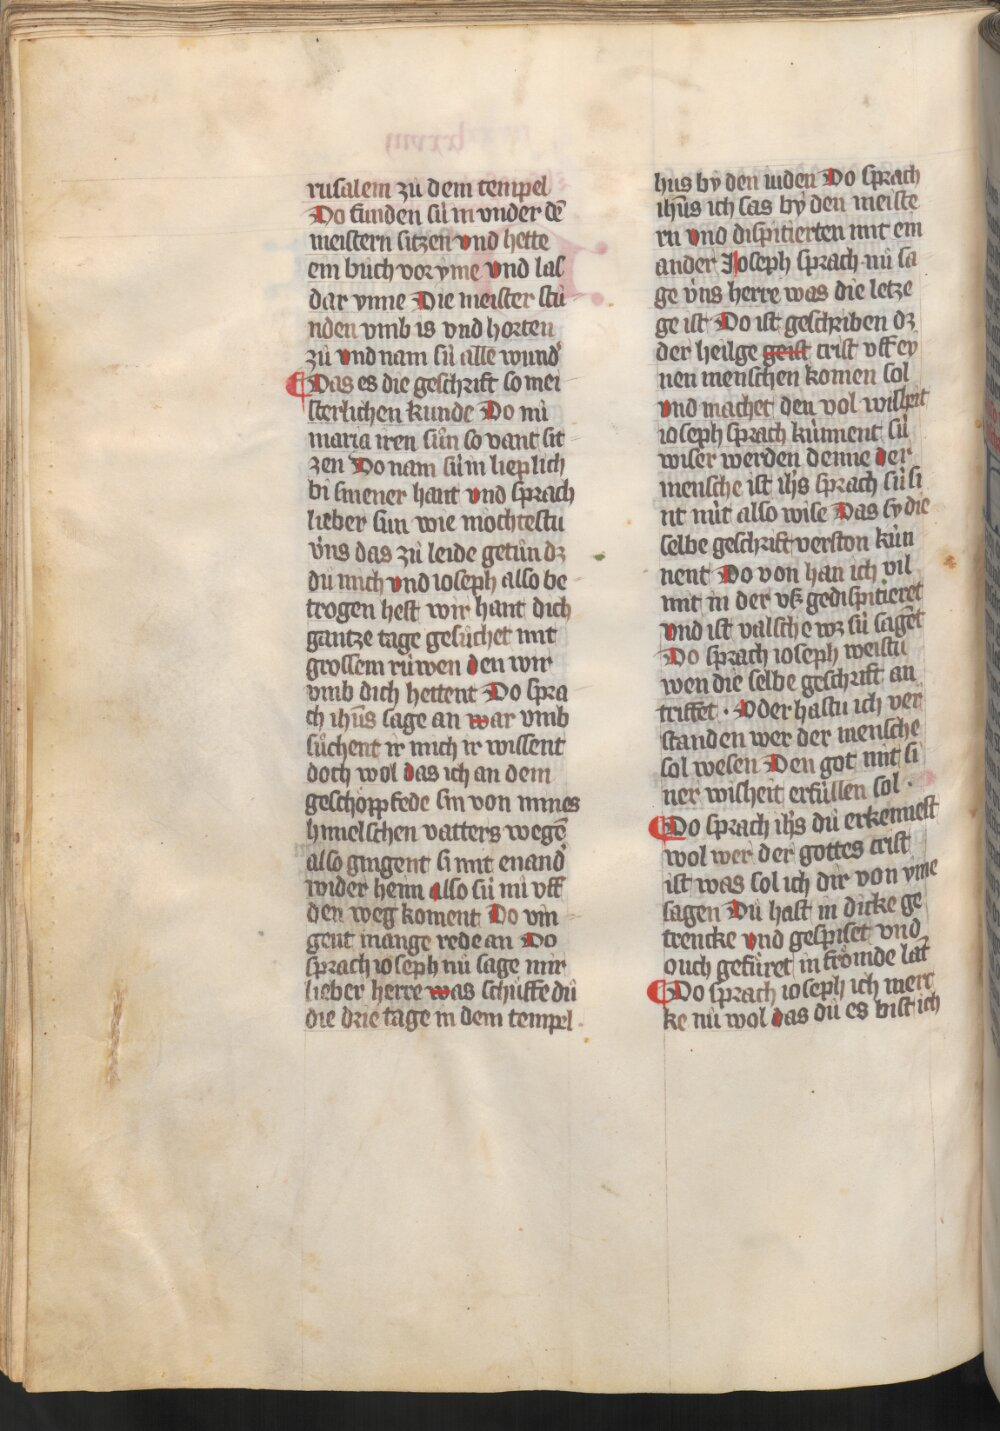 rusalem zů dem tempel
Do funden sü in vnder dē
meistern sitzen vnd hette
ein bůch vor yme vnd las
dar ynne Die meister stů
nden vmb is vnd horten
zů vnd nam sü alle wund
Das es die geschrift so mei
sterlichen kunde Do nů
maria iren sůn so vant sit
zen Do nam sü in lieplich
bi sinener hant vnd sprach
lieber sun wie möchtestu
v̇ns das zů leide getůn dz
dů mich vnd ioseph also be
trogen hest wir hant dich
gantze tage gesůchet mit
grossem rüwen den wir
vmb dich hettent Do spra
ch ihūs sage an war vmb
sůchent ir mich ir wissent
doch wol das ich an dem
geschöppfede sin von mines
himelschen vatters wegē
also gingent si mit enand
wider heim also sü nů vff
den weg koment Do vin
gent mange rede an Do
sprach ioseph nů sage mir
lieber herre was schüffe dů
die drie tage in dem tempel
hus by den iuden Do sprach
ihūs ich sas by den meiste
rn vnd dispitierten mit ein
ander Joseph sprach nů sa
ge v̇ns herre was die letze
ge ist Do ist geschriben dz
der heilge geist crist vff ey
nen menschen komen sol
vnd machet den vol wisheit
ioseph sprach kůnnent sü
wiser werden denne der
mensche ist ihs sprach sü si
nt nüt also wise Das sy die
selbe geschrift verston kün
nent Do von han ich vil
mit in der vs gedispitieret
vnd ist valsche wz sü saget
Do sprach ioseph weistu
wen die selbe geschrift an
triffet · Oder hastu ich ver
standen wer der mensche
sol wesen Den got mit si
ner wisheit erfüllen sol ·
Do sprach ihs dů erkennest
wol wer der gottes crist
ist was sol ich dir von yme
sagen Dů hast in dicke ge
trencke vnd gespiset vnd
ouch gefüret in frömde lāt
Do sprach ioseph ich merc
ke nů wol das dů es bist ich